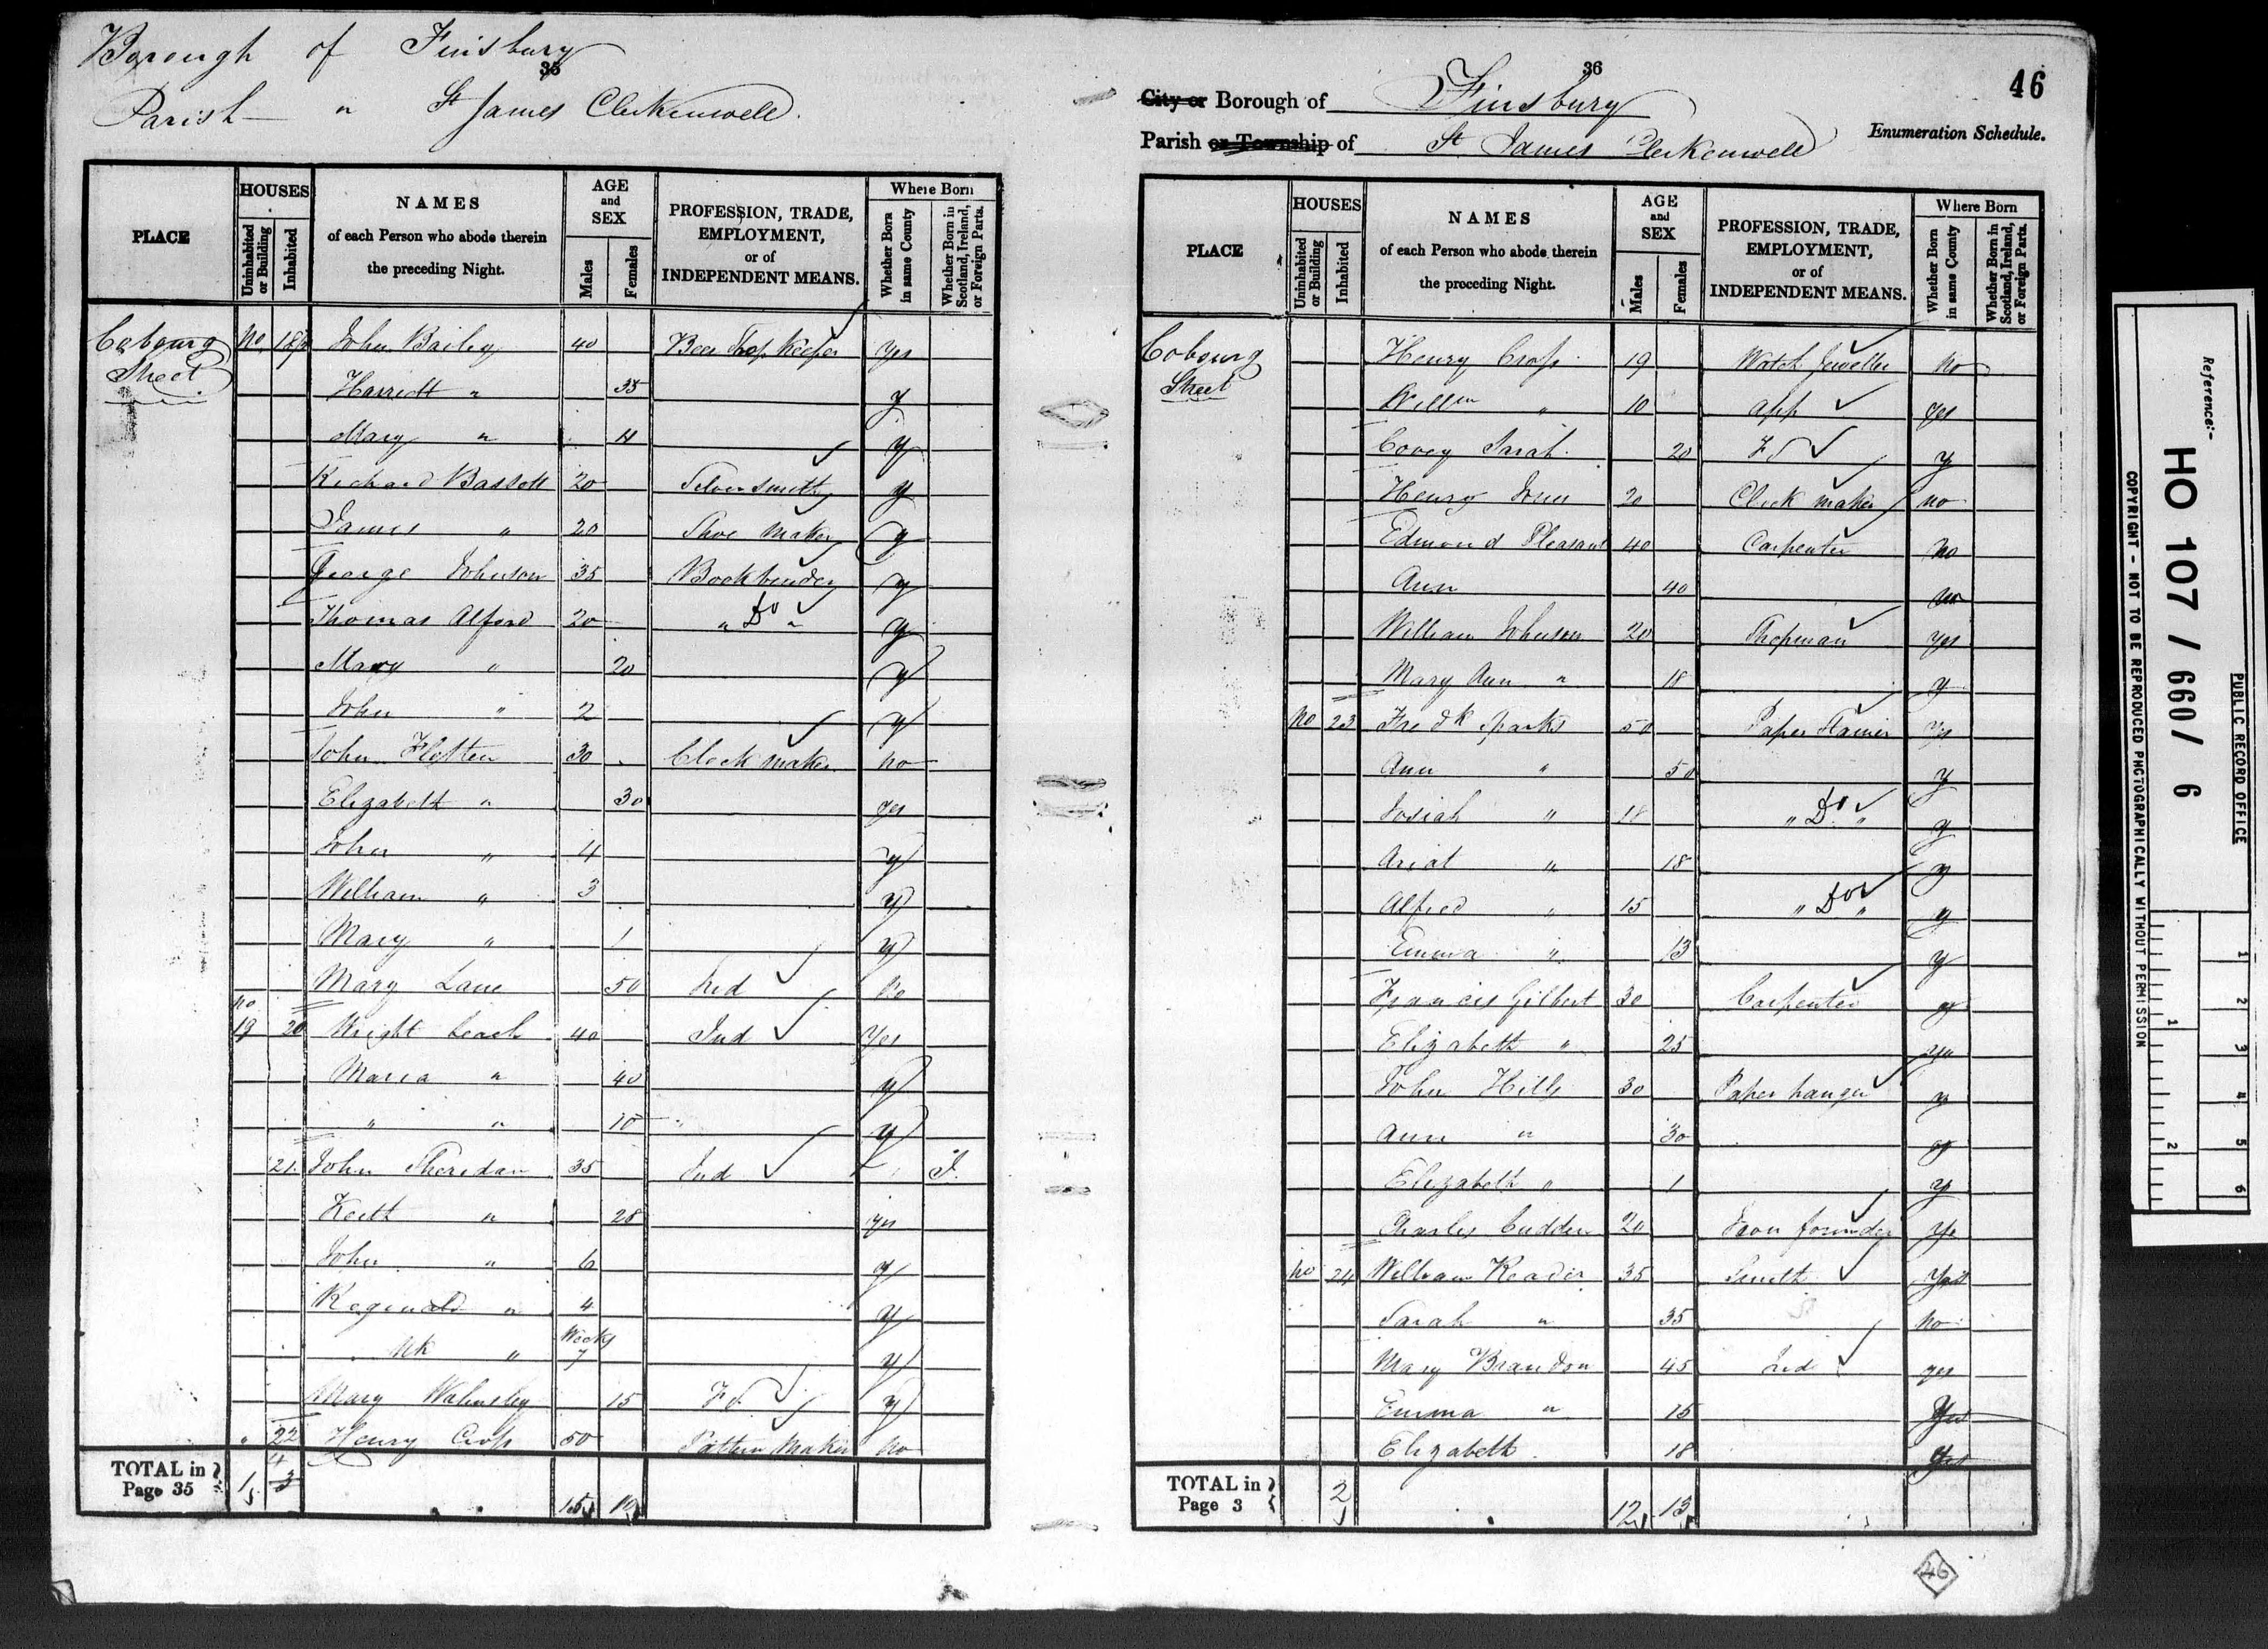 Borough of Finsbury
35
Parish " St James Clerkenwell.
PLACE
HOUSES
Uninhabited or Building
Inhabited
NAMES
of each Person who abode therein
the preceding Night.
AGE and SEX
Males
Females
PROFESSION, TRADE, EMPLOYMENT, or of INDEPENDENT MEANS.
Where Born
Whether Born in same County
Whether Born in Scotland, Ireland, or Foreign Parts.
Cobourg Street No 18 John Bailey 40 Beer Shop Keeper Yes
Harriett " 35 y
Mary " y
Richard Bassett 20 Silversmith y
James " 20 Shoe Maker y
George Johnson 35 Bookbinder y
Thomas Alford 20 " Do " y
Mary " 20 y
John " 2 y
John 30 Clock maker no
Elizabeth " 30 yes
John " 4 y
William " 3 y
Mary " 1 y
Mary Lane 50 Ind No
No 19 20 Wright Leach 40 Ind Yes
Maria " 40 y
" " 10 y
21 John Sheridan 35 Ind I
" 28 yes
John " 6 y
Reginald " 4 y
NK " Weeks 7 y
Mary Walmsley 15 F S y
" 22 Henry Cross 50 Pattern Maker No
TOTAL in Page 35 1 4 3 15 10
36
46
City or Borough of Finsbury
Parish or Township of St James Clerkenwell
Enumeration Schedule.
PLACE
HOUSES
Uninhabited or Building
Inhabited
NAMES
of each Person who abode therein
the preceding Night.
AGE and SEX
Males
Females
PROFESSION, TRADE, EMPLOYMENT, or of INDEPENDENT MEANS.
Where Born
Whether Born in same County
Whether Born in Scotland, Ireland, or Foreign Parts.
Cobourg Street Henry Cross 19 Watch Jeweller No
Willm " 10 app yes
Covey Sarah 20 F S y
Henry Jones 20 Clock maker no
Edmond Pleasant 40 Carpenter No
Ann 40 no
William Johnson 20 Shopman yes
Mary Ann " 18 y
No 23 Fredk Sparks 50 Paper Stainer Ys
Ann " 50 y
Josiah " 18 " Do " y
" 18 y
Alfred " 15 " Do " y
Emma " 13 y
Francis Gilbert 30 Carpenter y
Elizabeth " 25 ys
John Hills 30 Paper hanger y
Ann " 30 y
Elizabeth " 1 y
Charles Cudden 20 Iron founder Ys
No 24 William Reader 35 Smith Yes
Sarah " 35 No
Mary Brandon 45 Ind yes
Emma " 15 Yes
Elizabeth 18 yes
TOTAL in Page 3 2 12 13
46
Reference:-
HO 107 / 660 / 6
PUBLIC RECORD OFFICE
COPYRIGHT - NOT TO BE REPRODUCED PHOTOGRAPHICALLY WITHOUT PERMISSION
1 2 3 4 5 6
1 2